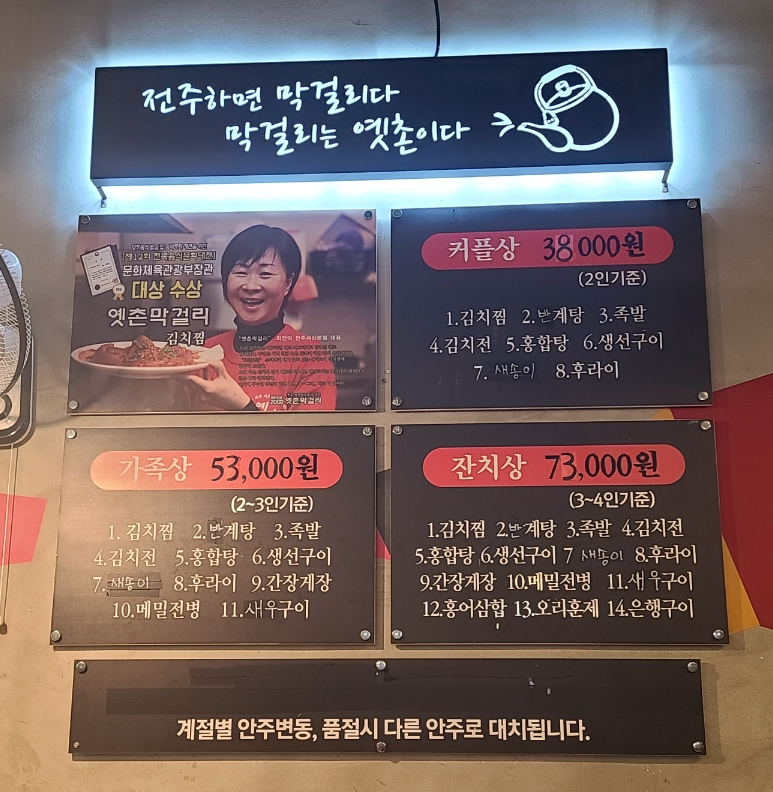 전주하면 막걸리다
막걸리는 옛촌이다
[제12회 전국음식문화대전]
문화체육관광부장관
대상 수상
옛촌막걸리
김치찜
"옛촌막걸리" 최인덕 전주서신본점 대표
since 2002 옛촌막걸리
커플상 38000원
(2인기준)
1.김치찜 2.반계탕 3.족발
4.김치전 5.홍합탕 6.생선구이
7. 새송이 8.후라이
가족상 53,000원
(2~3인기준)
1. 김치찜 2.반계탕 3.족발
4.김치전 5.홍합탕 6.생선구이
7. 새송이 8.후라이 9.간장게장
10.메밀전병 11.새우구이
잔치상 73,000원
(3~4인기준)
1.김치찜 2.반계탕 3.족발 4.김치전
5.홍합탕 6.생선구이 7 새송이 8.후라이
9.간장게장 10.메밀전병 11.새우구이
12.홍어삼합 13.오리훈제 14.은행구이
계절별 안주변동, 품절시 다른 안주로 대치됩니다.